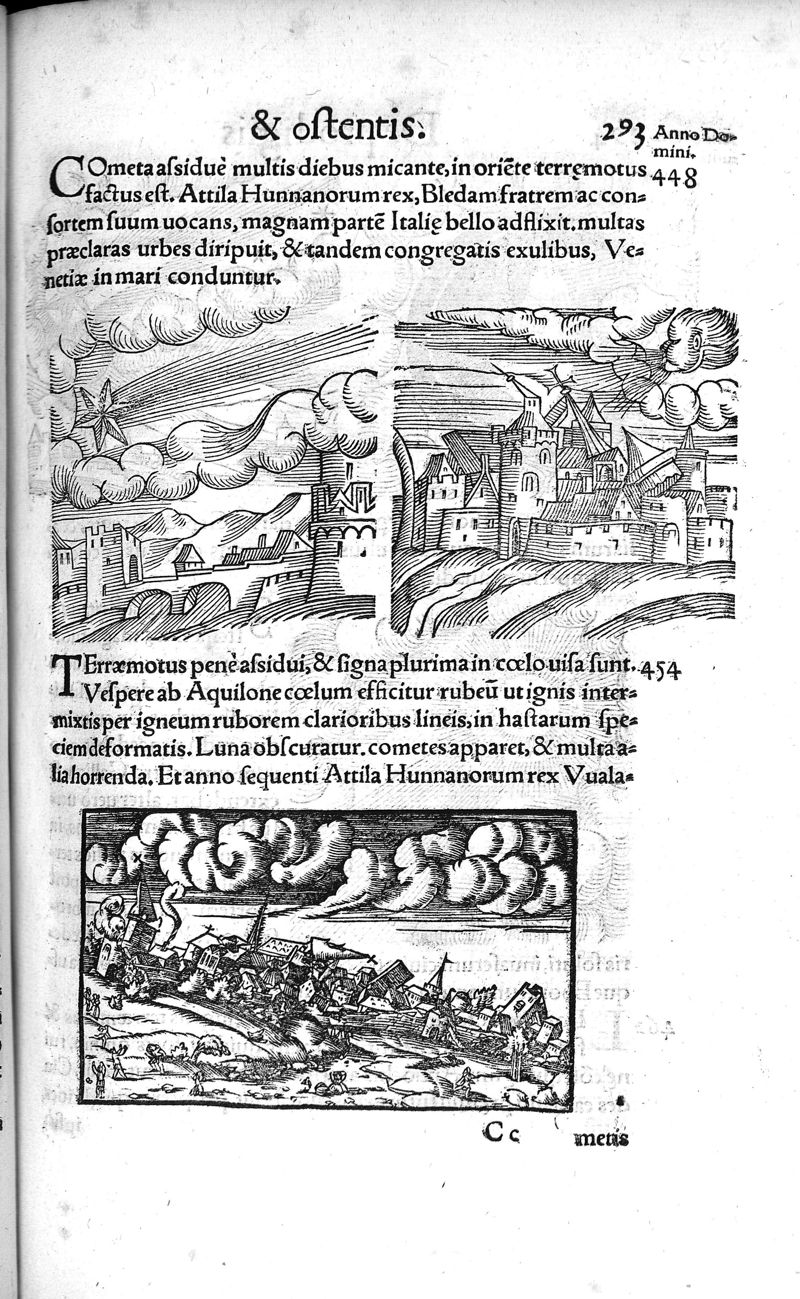 & ostentis. 293 Anno Do-
mini.
COmeta assiduè multis diebus micante, in oriẽte terręmotus 448
factus est. Attila Hunnanorum rex, Bledam fratrem ac con-
sortem suum uocans, magnam partẽ Italię bello adflixit. multas
præclaras urbes diripuit, & tandem congregatis exulibus, Ve-
netiæ in mari conduntur.
TErræmotus penè assidui, & signa plurima in cœlo uisa sunt. 454
Vespere ab Aquilone cœlum efficitur rubeũ ut ignis inter-
mixtis per igneum ruborem clarioribus lineis, in hastarum spe-
ciem deformatis. Luna obscuratur. cometes apparet, & multa a-
lia horrenda. Et anno sequenti Attila Hunnanorum rex Vuala-
Cc metis